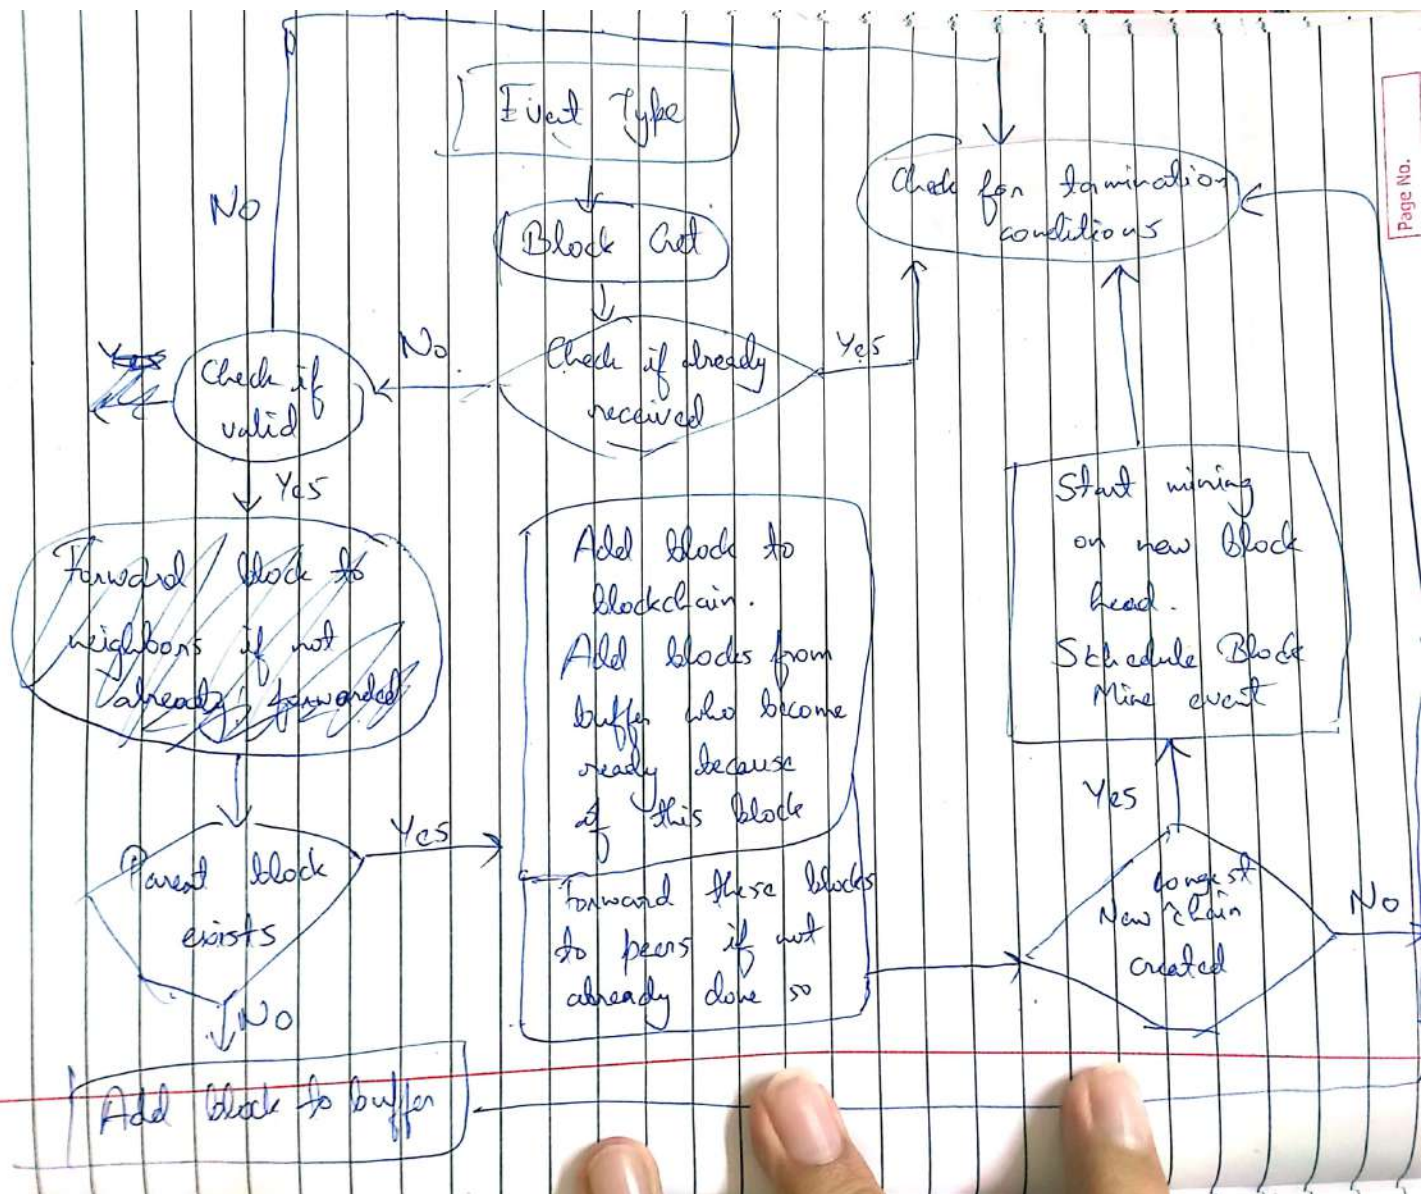 Event Type
Block Get
Check if already
received
Yes
No
Check if
valid
No
Yes
Yes
Forward block to
neighbors if not
already forwarded
Parent block
exists
Yes
No
Add block to buffer
Add block to
blockchain.
Add blocks from
buffer who become
ready because
of this block
Forward these blocks
to peers if not
already done so
longest
New chain
created
Yes
No
Start mining
on new block
head.
Schedule Block
Mine event
Check for termination
conditions
Page No.